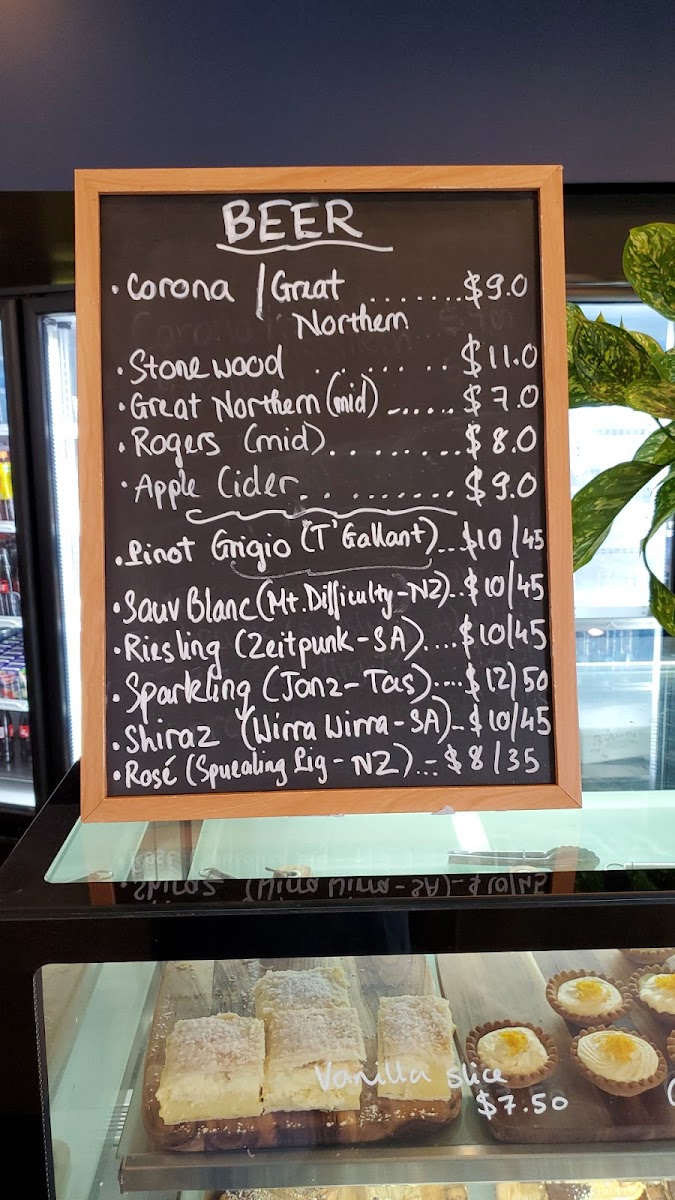 BEER
• Corona / Great ....... $9.0
Northern
• Stonewood . . . . . . . $11.0
• Great Northern (mid) ...... $7.0
• Rogers (mid) ......... $8.0
• Apple Cider. . ........ $9.0
• Pinot Grigio (T'Gallant)...$10/45
• Sauv Blanc (Mt. Difficulty-NZ)..$10/45
• Riesling (Zeitpunk-SA)....$10/45
• Sparkling (Janz-Tas)....$12/50
• Shiraz (Wirra Wirra-SA)-$10/45
• Rosé (Spuealing Pig-NZ)...$8/35
Vanilla slice
$7.50